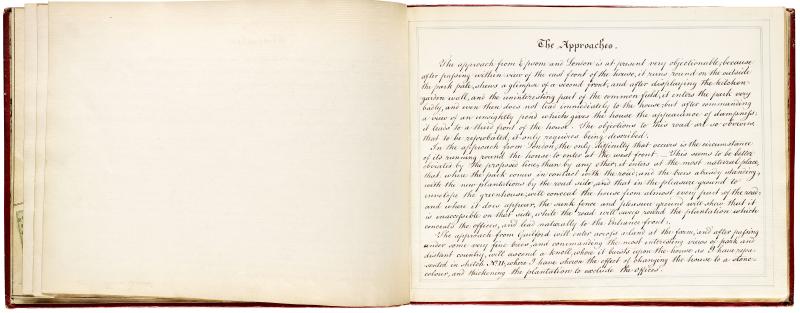 The Approaches.
The approach from Epsom and London is at present very objectionable, because
after passing within view of the east front of the house, it runs round on the outside
the park pale, shews a glimpse of a second front, and after displaying the kitchen
garden wall, and the uninteresting part of the common field, it enters the park very
badly, and even then does not lead immediately to the house but after commanding
a view of an unsightly pond which gives the house the appearance of dampness;
it leads to a third front of the house. The objections to this road are so obvious
that to be reprobated, it only requires being described.
In the approach from London, the only difficulty that occurs is the circumstance
of its running round the house to enter at the west front. This seems to be better
obviated by the proposed line, than by any other; it enters at the most natural place,
that where the park comes in contact with the road; and the trees already standing,
with the new plantations by the road side, and that in the pleasure ground to
envelope the greenhouse, will conceal the house from almost every part of the road;
and where it does appear, the sunk fence and pleasure ground will shew that it
is inaccessible on that side, while the road will sweep round the plantation which
conceals the offices, and lead naturally to the Entrance front.
The approach from Guilford will enter across a land at the farm, and after passing
under some very fine trees, and commanding the most interesting views of park and
distant country, will ascend a knoll, where it bursts upon the house as I have repre-
sented in sketch No. 11, where I have shewn the effect of changing the house to a stone-
colour, and thickening the plantation to exclude the offices.